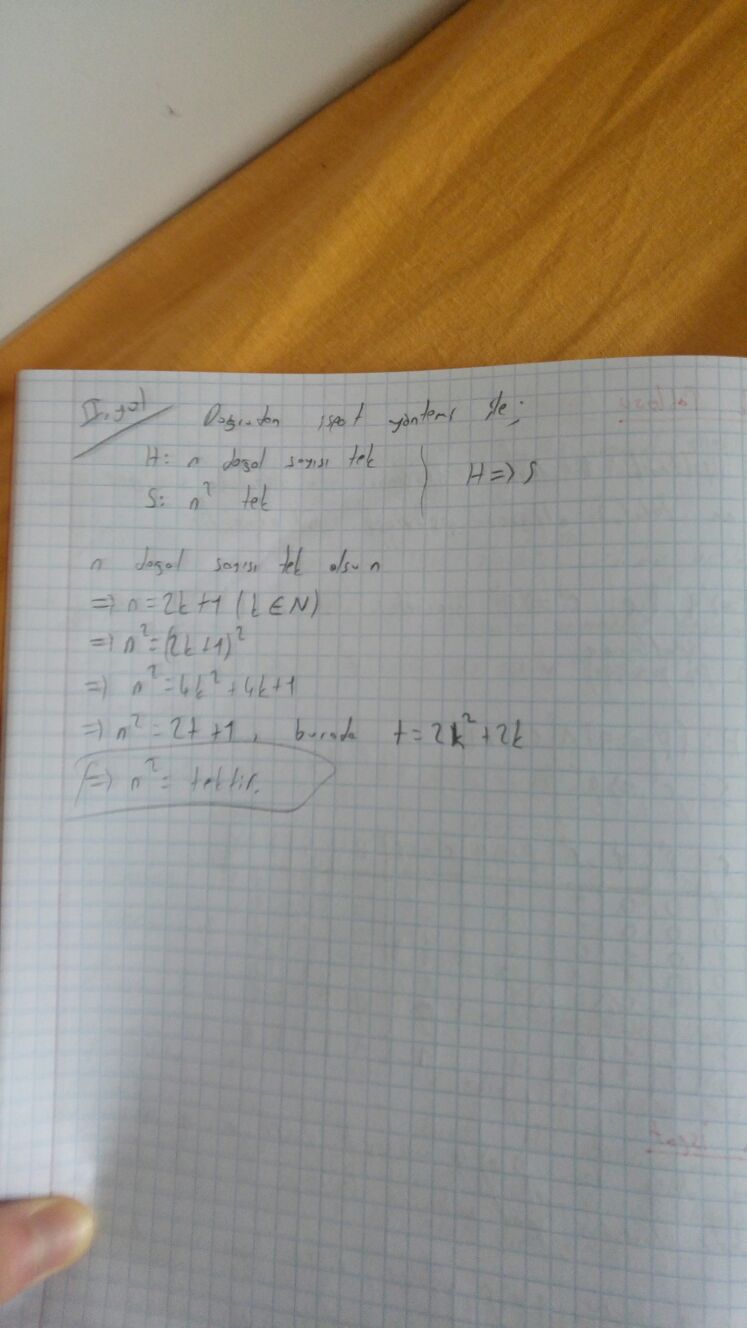 II. yol Doğrudan ispat yöntemi ile;
H: n doğal sayısı tek
S: n² tek
H => S
n doğal sayısı tek olsun
=> n = 2k+1 (k ∈ N)
=> n² = (2k+1)²
=> n² = 4k² + 4k+1
=> n² = 2t +1, burada t = 2k² + 2k
=> n² = tektir.